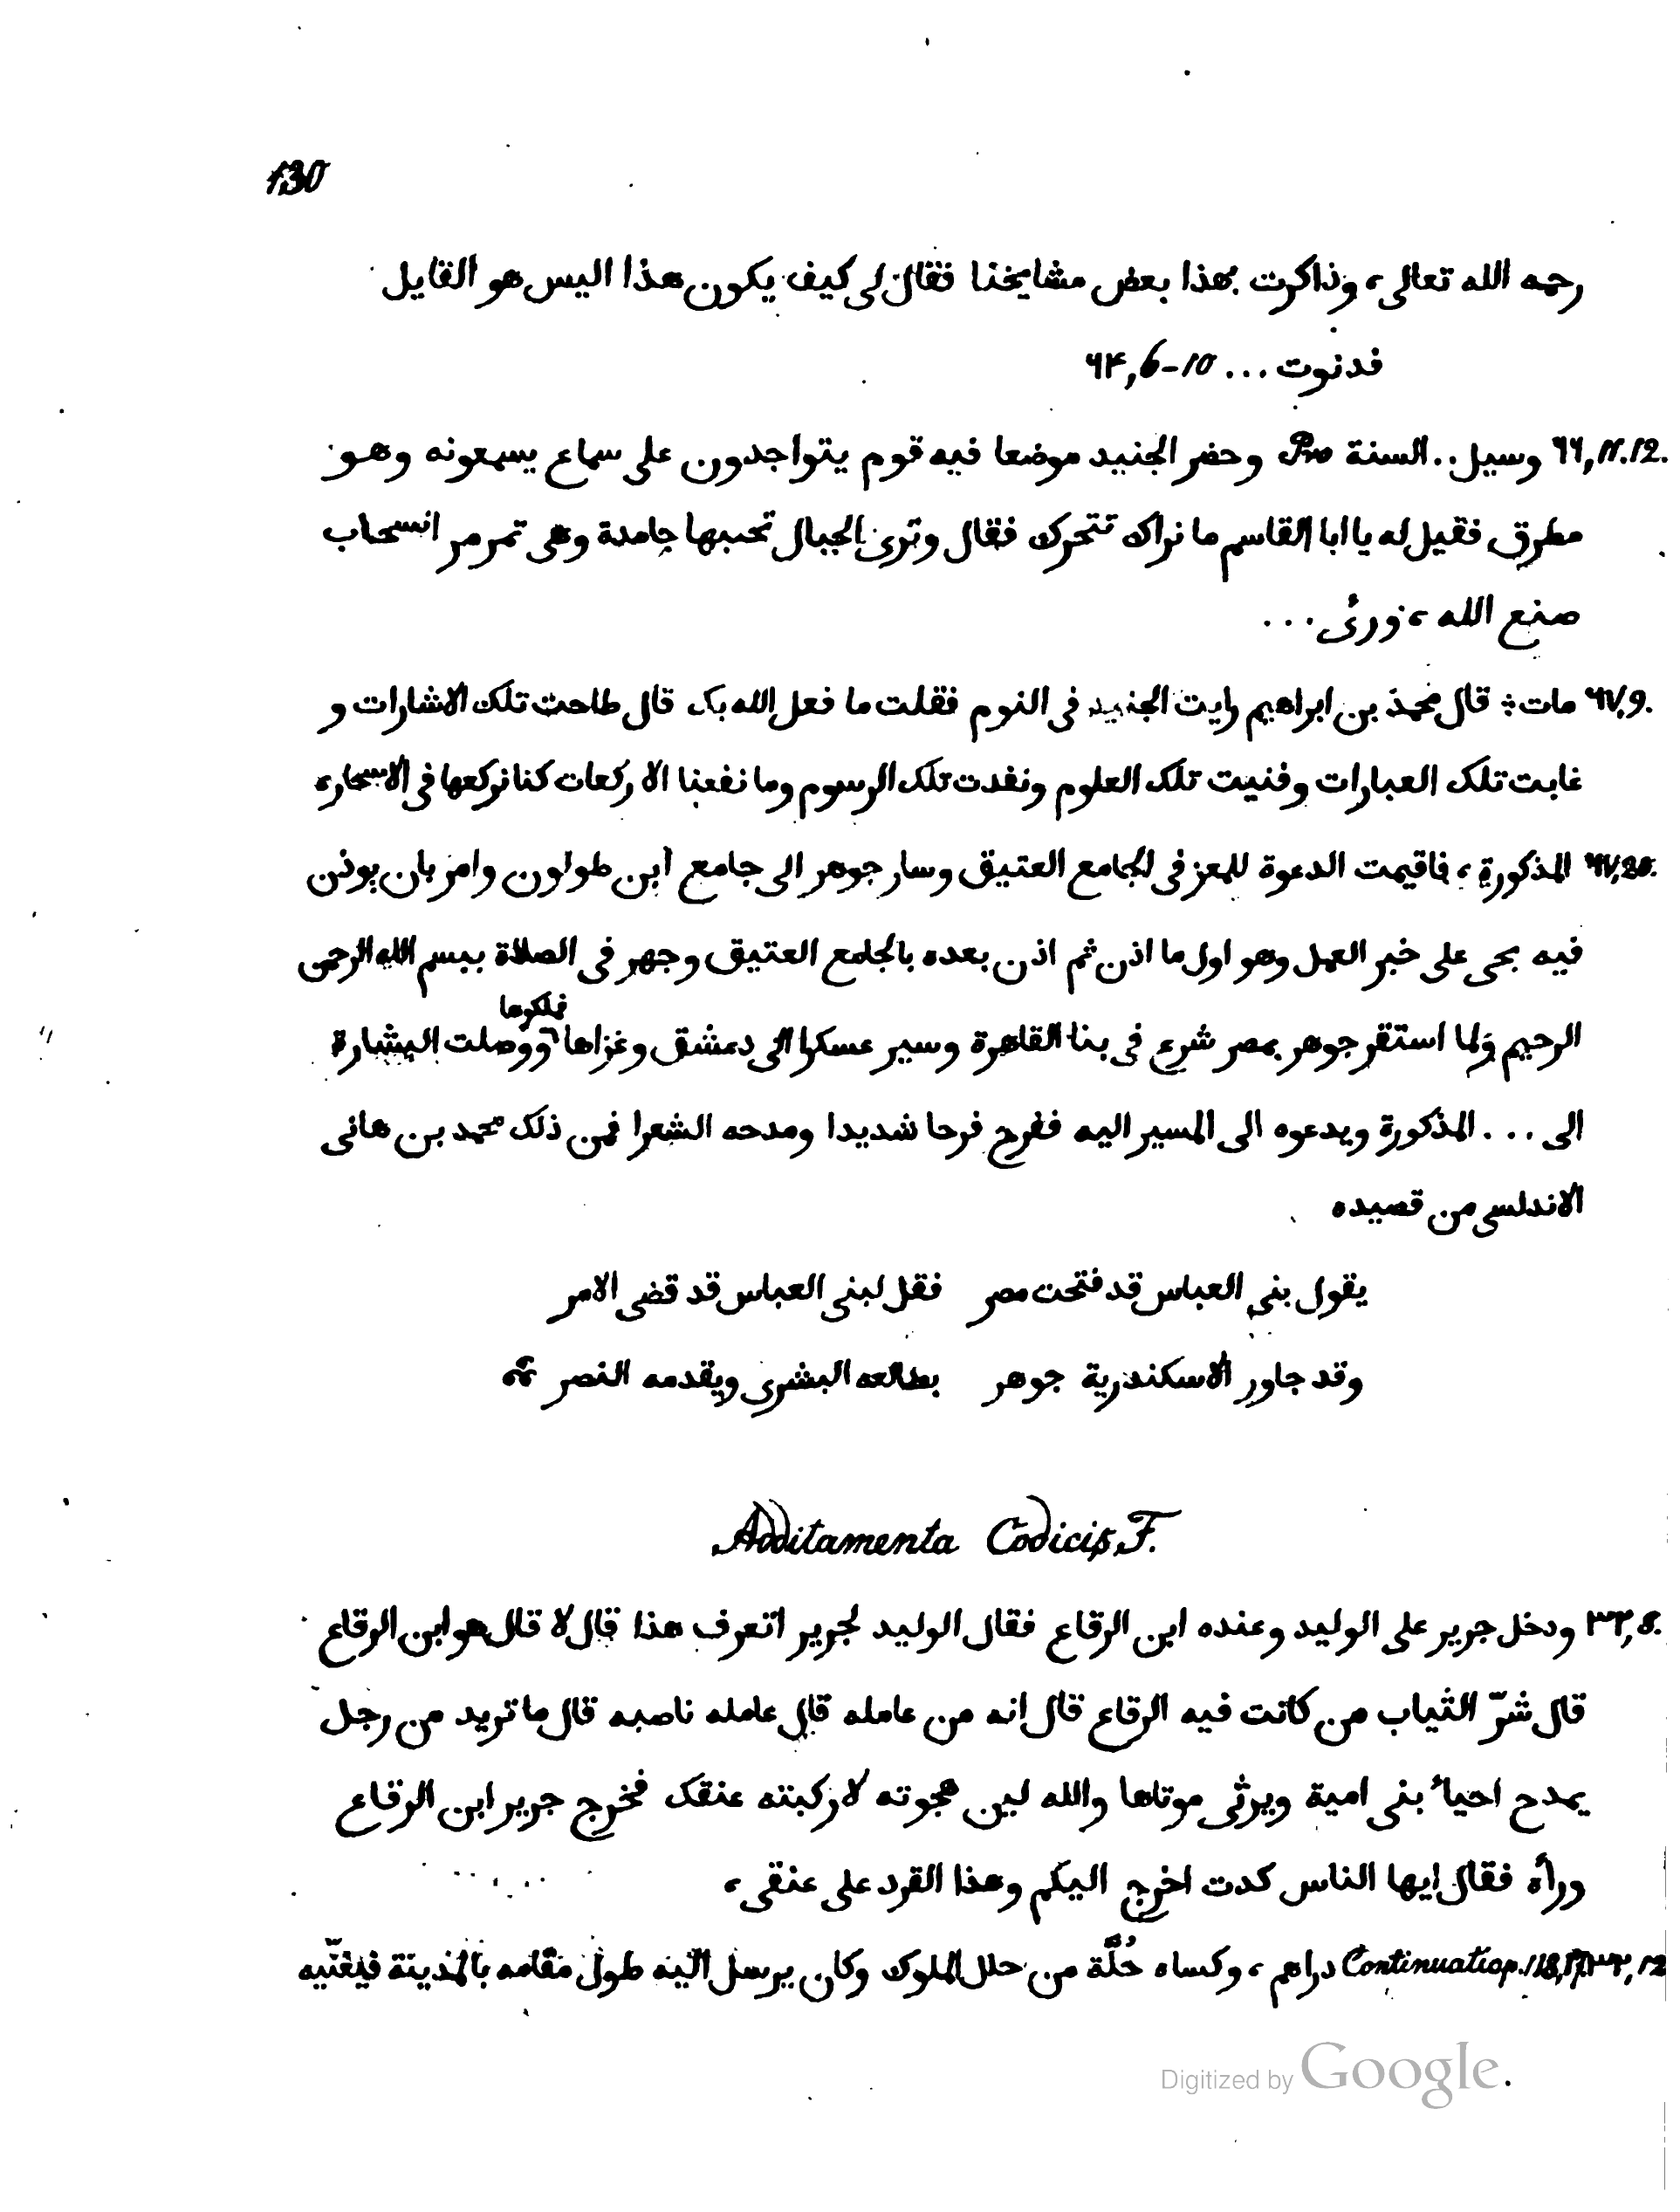 130
رحمه الله تعالى، وذاكرت بهذا بعض مشايخنا فقال لى كيف يكون هذا اليس هو القايل
فدنوت ... ٩٤,6-10
٦٦,11.12. وسيل .. السنة Pro وحضر الجنيد موضعا فيه قوم يتواجدون على سماع يسمعونه وهو
مطرق فقيل له يا ابا القاسم ما نراك تتحرك فقال وترى الجبال تحسبها جامدة وهى تمر مر السحاب
صنع الله، ورئى ...
٦٧,9. مات ؛ قال محمد بن ابراهيم رايت الجنيد فى النوم فقلت ما فعل الله بك قال طاحت تلك الاشارات و
غابت تلك العبارات وفنيت تلك العلوم ونفدت تلك الرسوم وما نفعنا الا ركعات كنا نركعها فى الاسحار،
٦٧,20. المذكورة، فاقيمت الدعوة للمعز فى الجامع العتيق وسار جوهر الى جامع ابن طولون وامر بان يوذن
فيه بحى على خير العمل وهو اول ما اذن ثم اذن بعده بالجامع العتيق وجهر فى الصلاة ببسم الله الرحمن
الرحيم ولما استقر جوهر بمصر شرع فى بنا القاهرة وسير عسكرا الى دمشق وغزاها فملكوها ووصلت البشارة
الى ... المذكورة ويدعوه الى المسير اليه ففرح فرحا شديدا ومدحه الشعرا فمن ذلك محمد بن هانى
الاندلسى من قصيده
يقول بنى العباس قد فتحت مصر فقل لبنى العباس قد قضى الامر
وقد جاور الاسكندرية جوهر بطالعه البشرى ويقدمه النصر
Additamenta Codicis F.
٣٢,8. ودخل جرير على الوليد وعنده ابن الرقاع فقال الوليد لجرير اتعرف هذا قال لا قال هو ابن الرقاع
قال شرّ الثياب من كانت فيه الرقاع قال انه من عامله قال عامله ناصبه قال ما تريد من رجل
يمدح احياء بنى امية ويرثى موتاها والله لين هجوته لاركبنه عنقك فخرج جرير ابن الرقاع
ورأه فقال ايها الناس كدت اخرج اليكم وهذا القرد على عنقى،
٣٢,12 Continuatio p. 118,17. دراهم، وكساه حُلَّة من حلل الملوك وكان يرسل اليه طول مقامه بالمدينة فيغنّيه
Digitized by Google